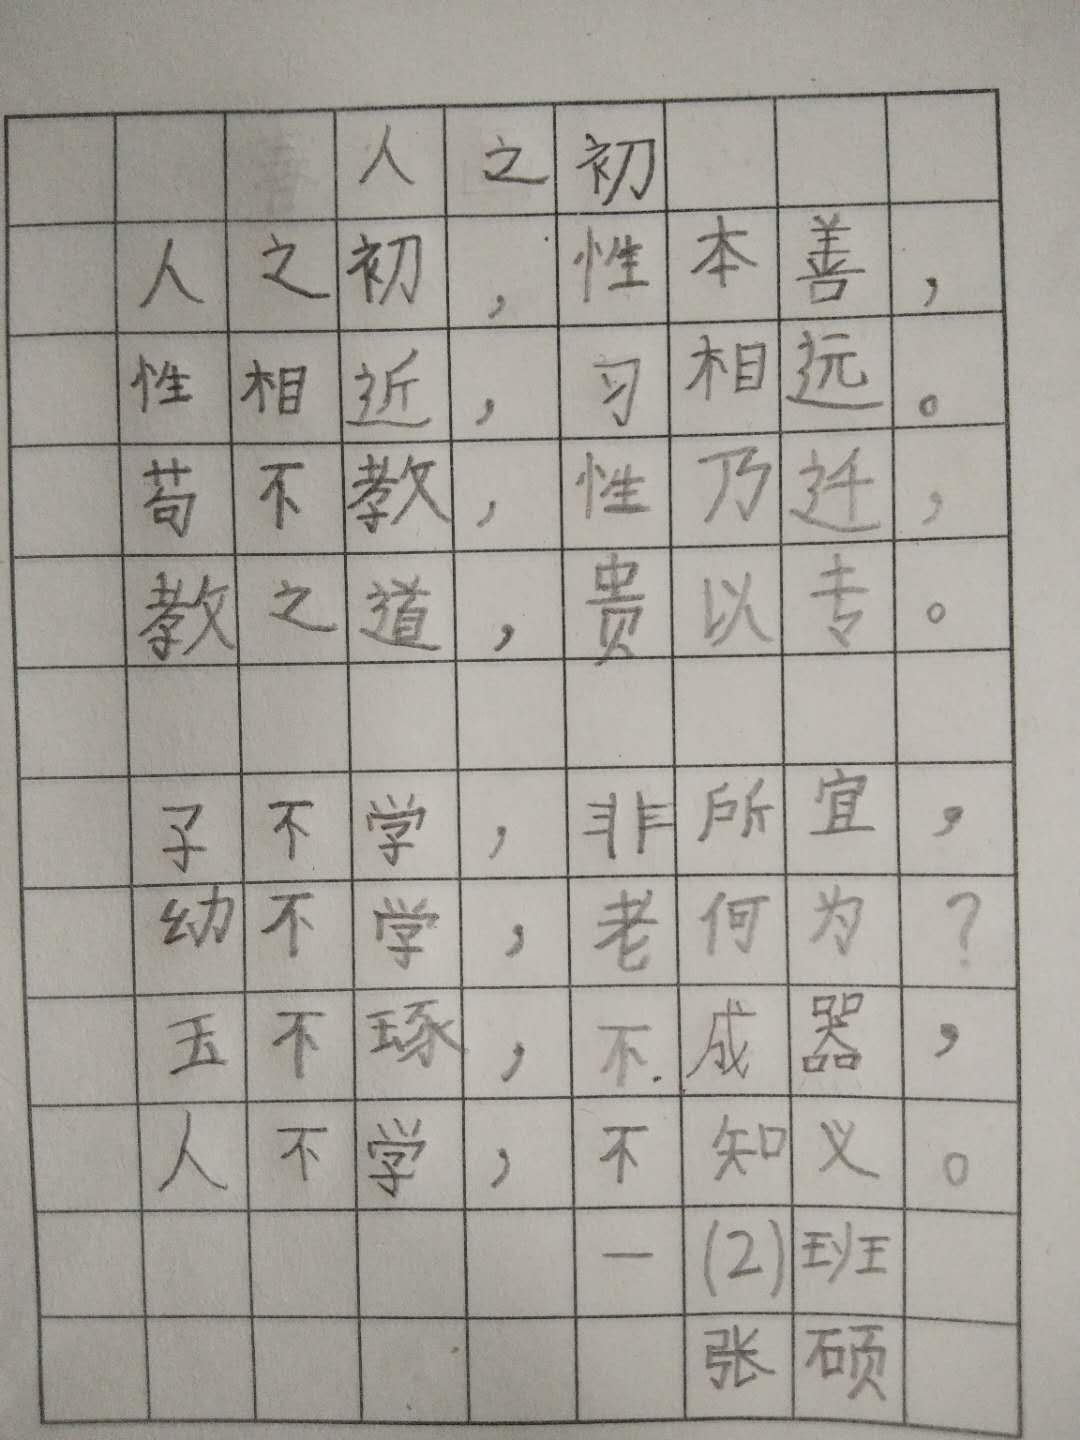 人之初
人之初，性本善，
性相近，习相远。
苟不教，性乃迁，
教之道，贵以专。
子不学，非所宜，
幼不学，老何为？
玉不琢，不成器，
人不学，不知义。
一（2）班
张硕